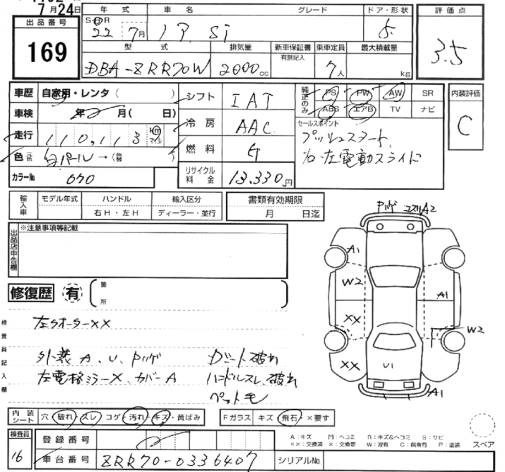 7月24日
出品番号
169
年式
車名
グレード
ドア・形状
22年 7月
Si
5
評価点
3.5
型式
排気量
新車保証書
有 無 記入
乗車定員
最大積載量
DBA-ZRR70W
2000cc
7人
kg
車歴 自家用・レンタ( )
車検 年 月( 日)
走行 110,113
色
カラーNo 070
シフト IAT
冷房 AAC
燃料 G
リサイクル料金 13,330円
PS PW AW SR
ABS エアB TV ナビ
セールスポイント
プッシュスタート
左電動スライド
内装評価
C
輸入車
モデル年式
ハンドル
右H・左H
輸入区分
ディーラー・並行
書類有効期限
月 日迄
出品店申告欄
※注意事項等記載
修復歴 有
箇所
検査員記入欄
左クオーターXX
外装 A、U、
左電格ミラーX、カバーA
ハンドルスレ、破れ
A1
W2
XX
XX
A1
W2
U1
内装シート
穴 破れ スレ コゲ 汚れ キズ 黄ばみ
Fガラス キズ 飛石 ×要す
A:キズ M:ヘコミ B:キズ&ヘコミ S:サビ
スペア
検査員
16
登録番号
車台番号 ZRR70-0336407
シリアルNo